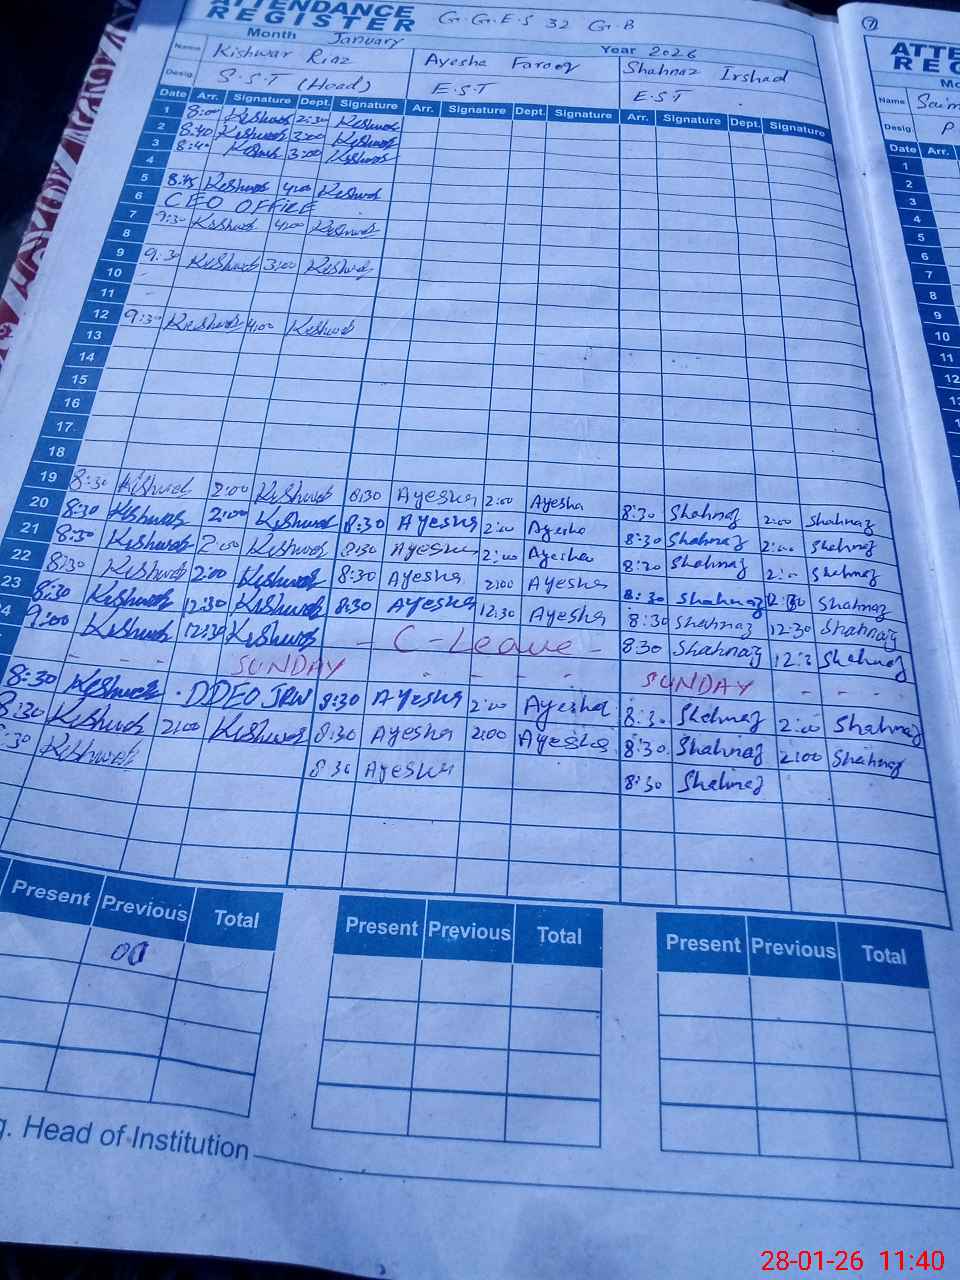 ATTENDANCE
REGISTER G.G.E.S 32 G.B
Month January Year 2026
Name Kishwar Riaz Ayesha Farooq Shahnaz Irshad
Desig. S.S.T (Head) E.S.T E.S.T
Date Arr. Signature Dept. Signature Arr. Signature Dept. Signature Arr. Signature Dept. Signature
1 8:00 Kishwar 2:30 Kishwar
2 8:40 Kishwar 3:00 Kishwar
3 8:40 Kishwar 3:00 Kishwar
4
5 8:45 Kishwar 4:00 Kishwar
6 CEO OFFICE
7 9:30 Kishwar 4:00 Kishwar
8
9 9:30 Kishwar 3:00 Kishwar
10 -
11 -
12 9:30 Kishwar 4:00 Kishwar
13
14
15
16
17
18
19 8:30 Kishwar 2:00 Kishwar 8:30 Ayesha 2:00 Ayesha 8:30 Shahnaz 2:00 Shahnaz
20 8:30 Kishwar 2:00 Kishwar 8:30 Ayesha 2:00 Ayesha 8:30 Shahnaz 2:00 Shahnaz
21 8:30 Kishwar 2:00 Kishwar 8:30 Ayesha 2:00 Ayesha 8:30 Shahnaz 2:00 Shahnaz
22 8:30 Kishwar 2:00 Kishwar 8:30 Ayesha 2:00 Ayesha 8:30 Shahnaz Shahnaz
23 8:30 Kishwar 12:30 Kishwar 8:30 Ayesha 12:30 Ayesha 8:30 Shahnaz 12:30 Shahnaz
9:00 Kishwar 12:30 Kishwar - C-Leave - 8:30 Shahnaz Shahnaz
- - - SUNDAY - - - - SUNDAY - -
8:30 Kishwar DDEO JRW 8:30 Ayesha 2:00 Ayesha 8:30 Shahnaz 2:00 Shahnaz
8:30 Kishwar 2:00 Kishwar 8:30 Ayesha 2:00 Ayesha 8:30 Shahnaz 2:00 Shahnaz
Kishwar 8:30 Ayesha 8:30 Shahnaz
Present Previous Total Present Previous Total Present Previous Total
00
Head of Institution
7
Name
Desig. P
Date Arr.
1
2
3
4
5
6
7
8
9
10
11
12
28-01-26 11:40